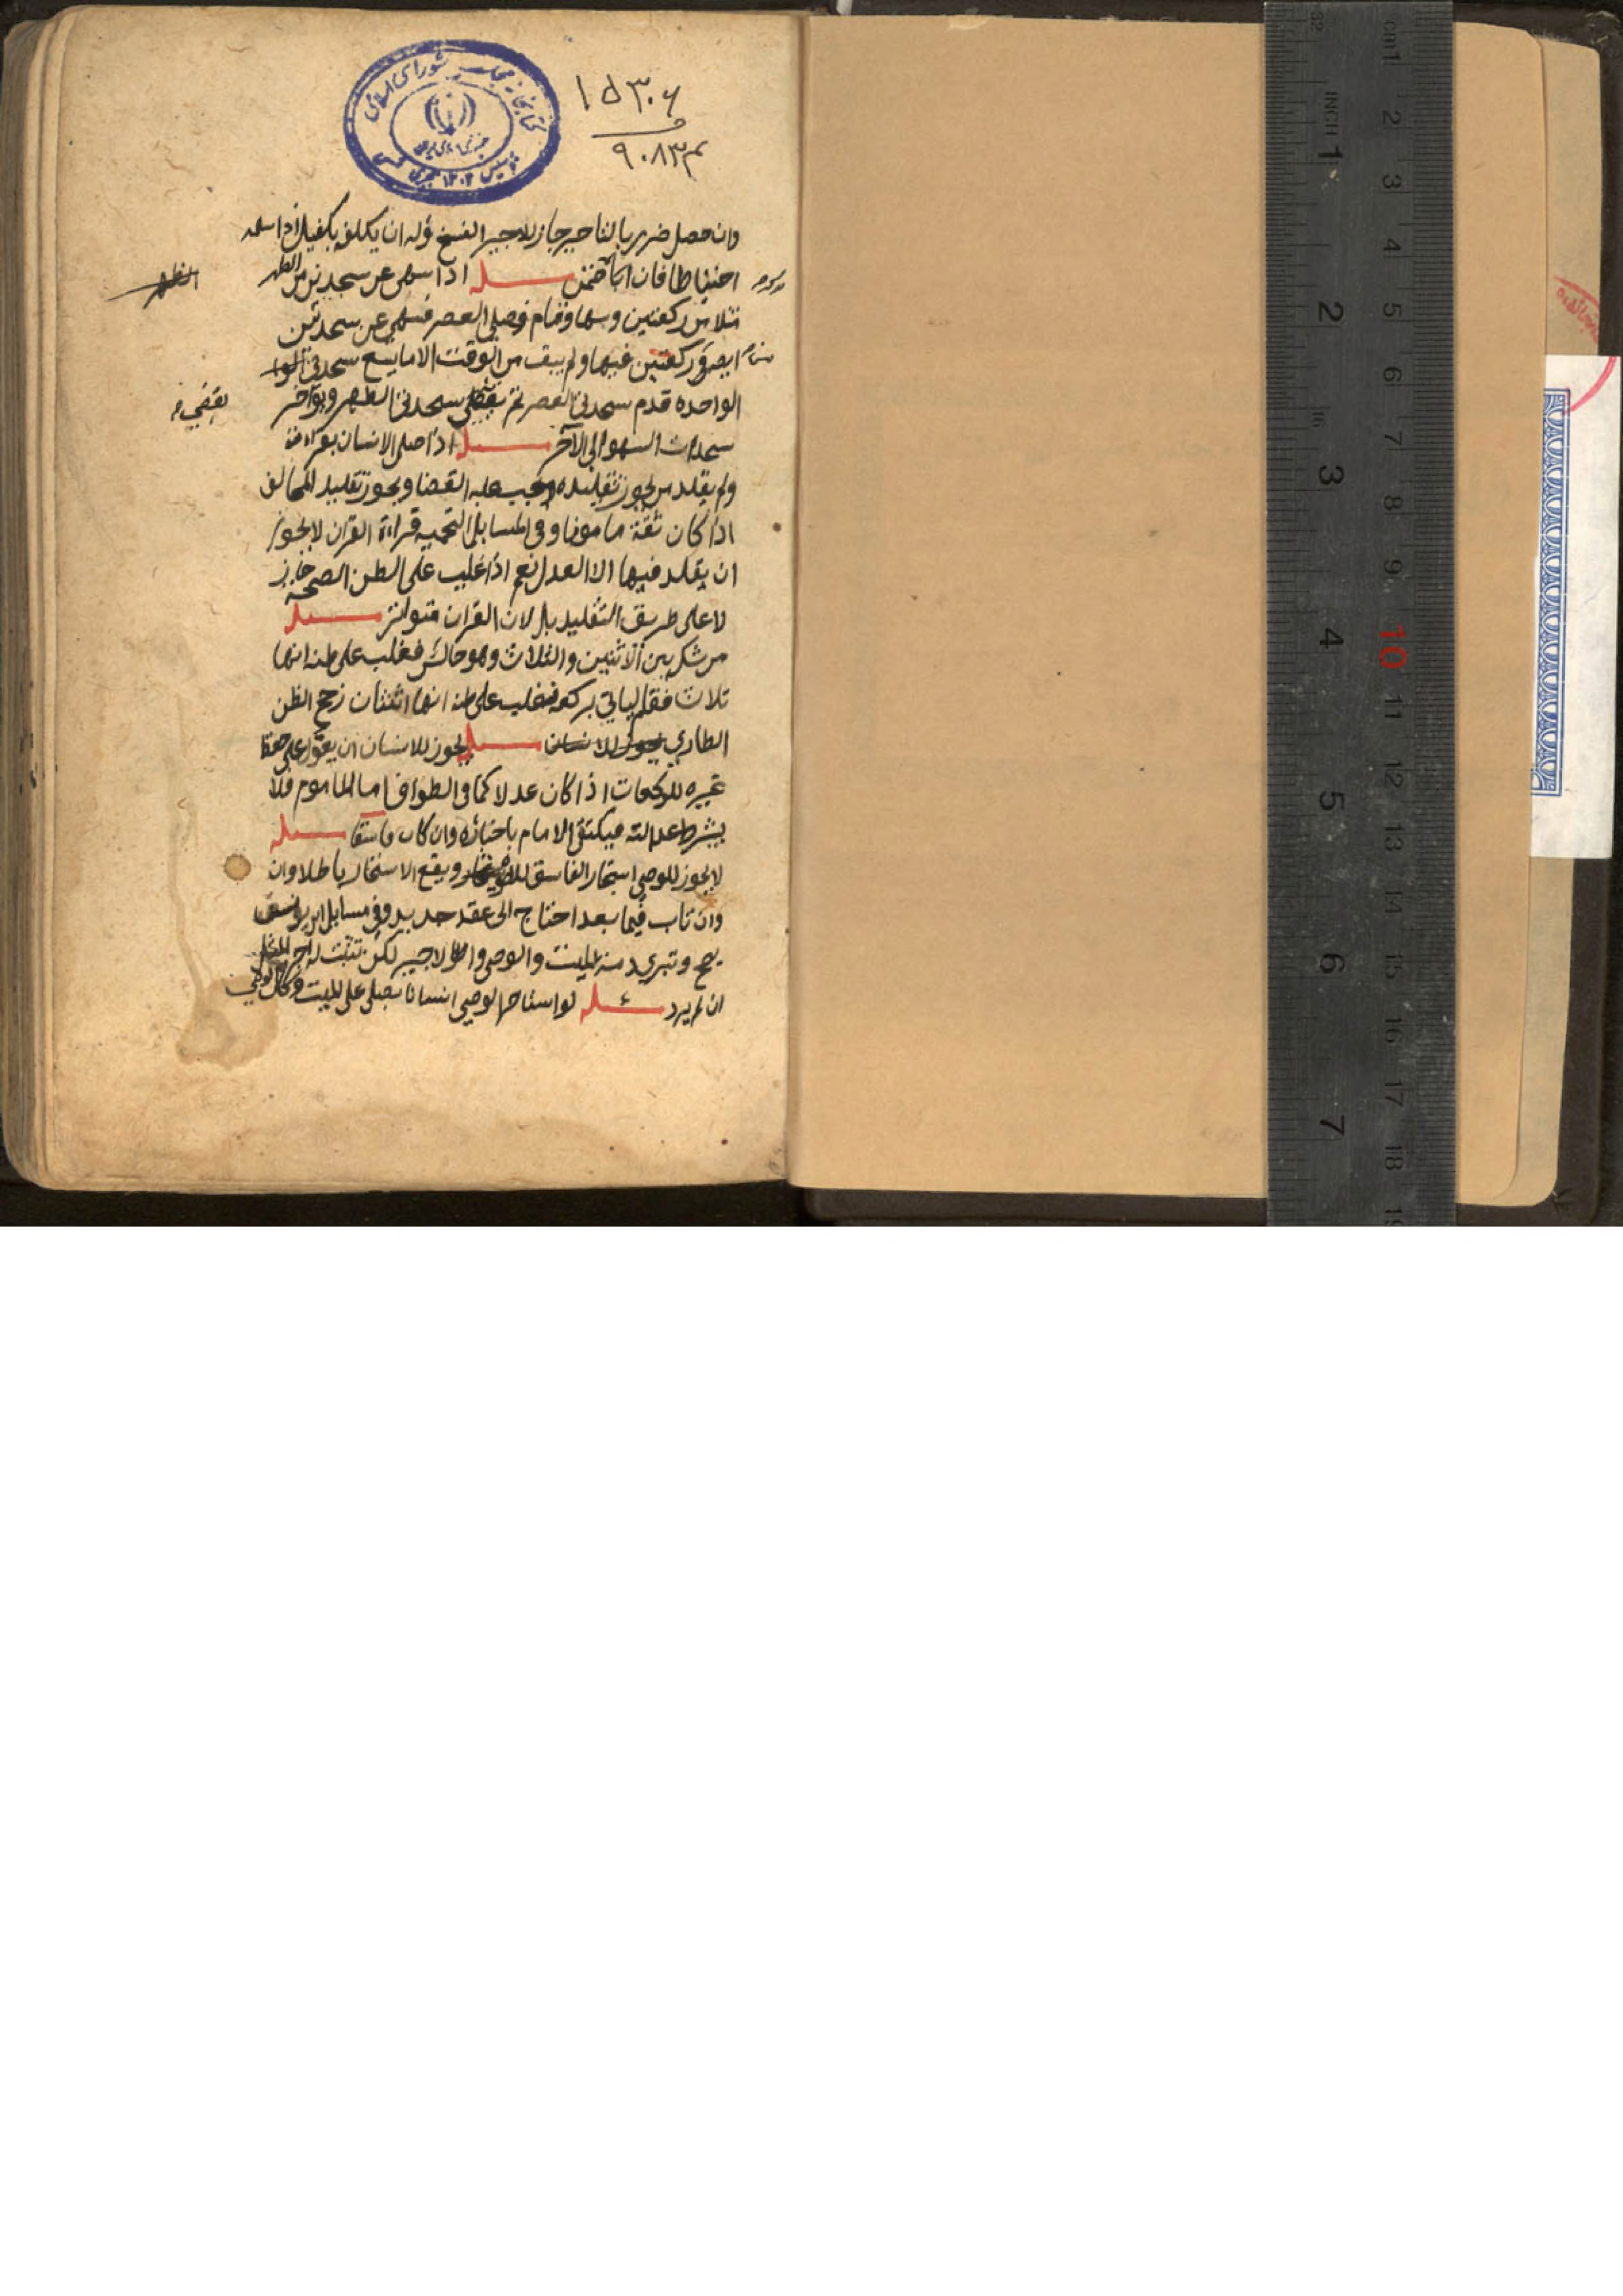 ۱۵۳۰۶
۹۰۸۳۳
کتابخانه مجلس شورای اسلامی
وان حصل ضرر بالتاخير جاز للاجير الفسخ وله ان يكلفه بكفيل اذا سلمه
احتياطا فان اباه مسله اذا سهى عن سجدتين من الظهر
الظهر
من ركعتين وسها وقام فصلى العصر فسهى عن سجدتين
ايضا من ركعتين فيها ولم يبق من الوقت الا ما يسع سجدتي
الواحده قدم سجدتي العصر ثم يقضي سجدتي الظهر ويوخر
يقضي
سجدات السهو الى الآخر مسله اذا صلى الانسان بقراءة
ولم يقلد من يجوز تقليده وجب عليه القضا ويجوز تقليد المخالف
اذا كان ثقة مامونا وفي المسايل قراءة القران لا يجوز
ان يقلد فيها الا العدل نعم اذا غلب على الظن الصحة جاز
لا على طريق التقليد بل لان القران متواتر مسله
من شك بين الاثنين والثلاث وهو جالس فغلب على ظنه انها
ثلاث فقام لياتي بركعة فغلب على ظنه انها اثنتان رجح الظن
الطاري يجوز للانسان مسله يجوز للانسان ان يعول على حفظ
غيره للركعات اذا كان عدلا كما في الطواف اما الماموم فلا
يشترط عدالته فيكتفي الامام باخباره وان كان فاسقا مسله
لا يجوز للوصي استيجار الفاسق ويقع الاستيجار باطلا وان
وان تاب فيما بعد احتاج الى عقد جديد وفي مسايل ابن
يصح وتبرى ذمة الميت والوصي والاجير لكن تثبت له اجرة المثل
ان لم يرد مسئله لو استاجر الوصي انسانا يصلي على الميت وكان الوصي